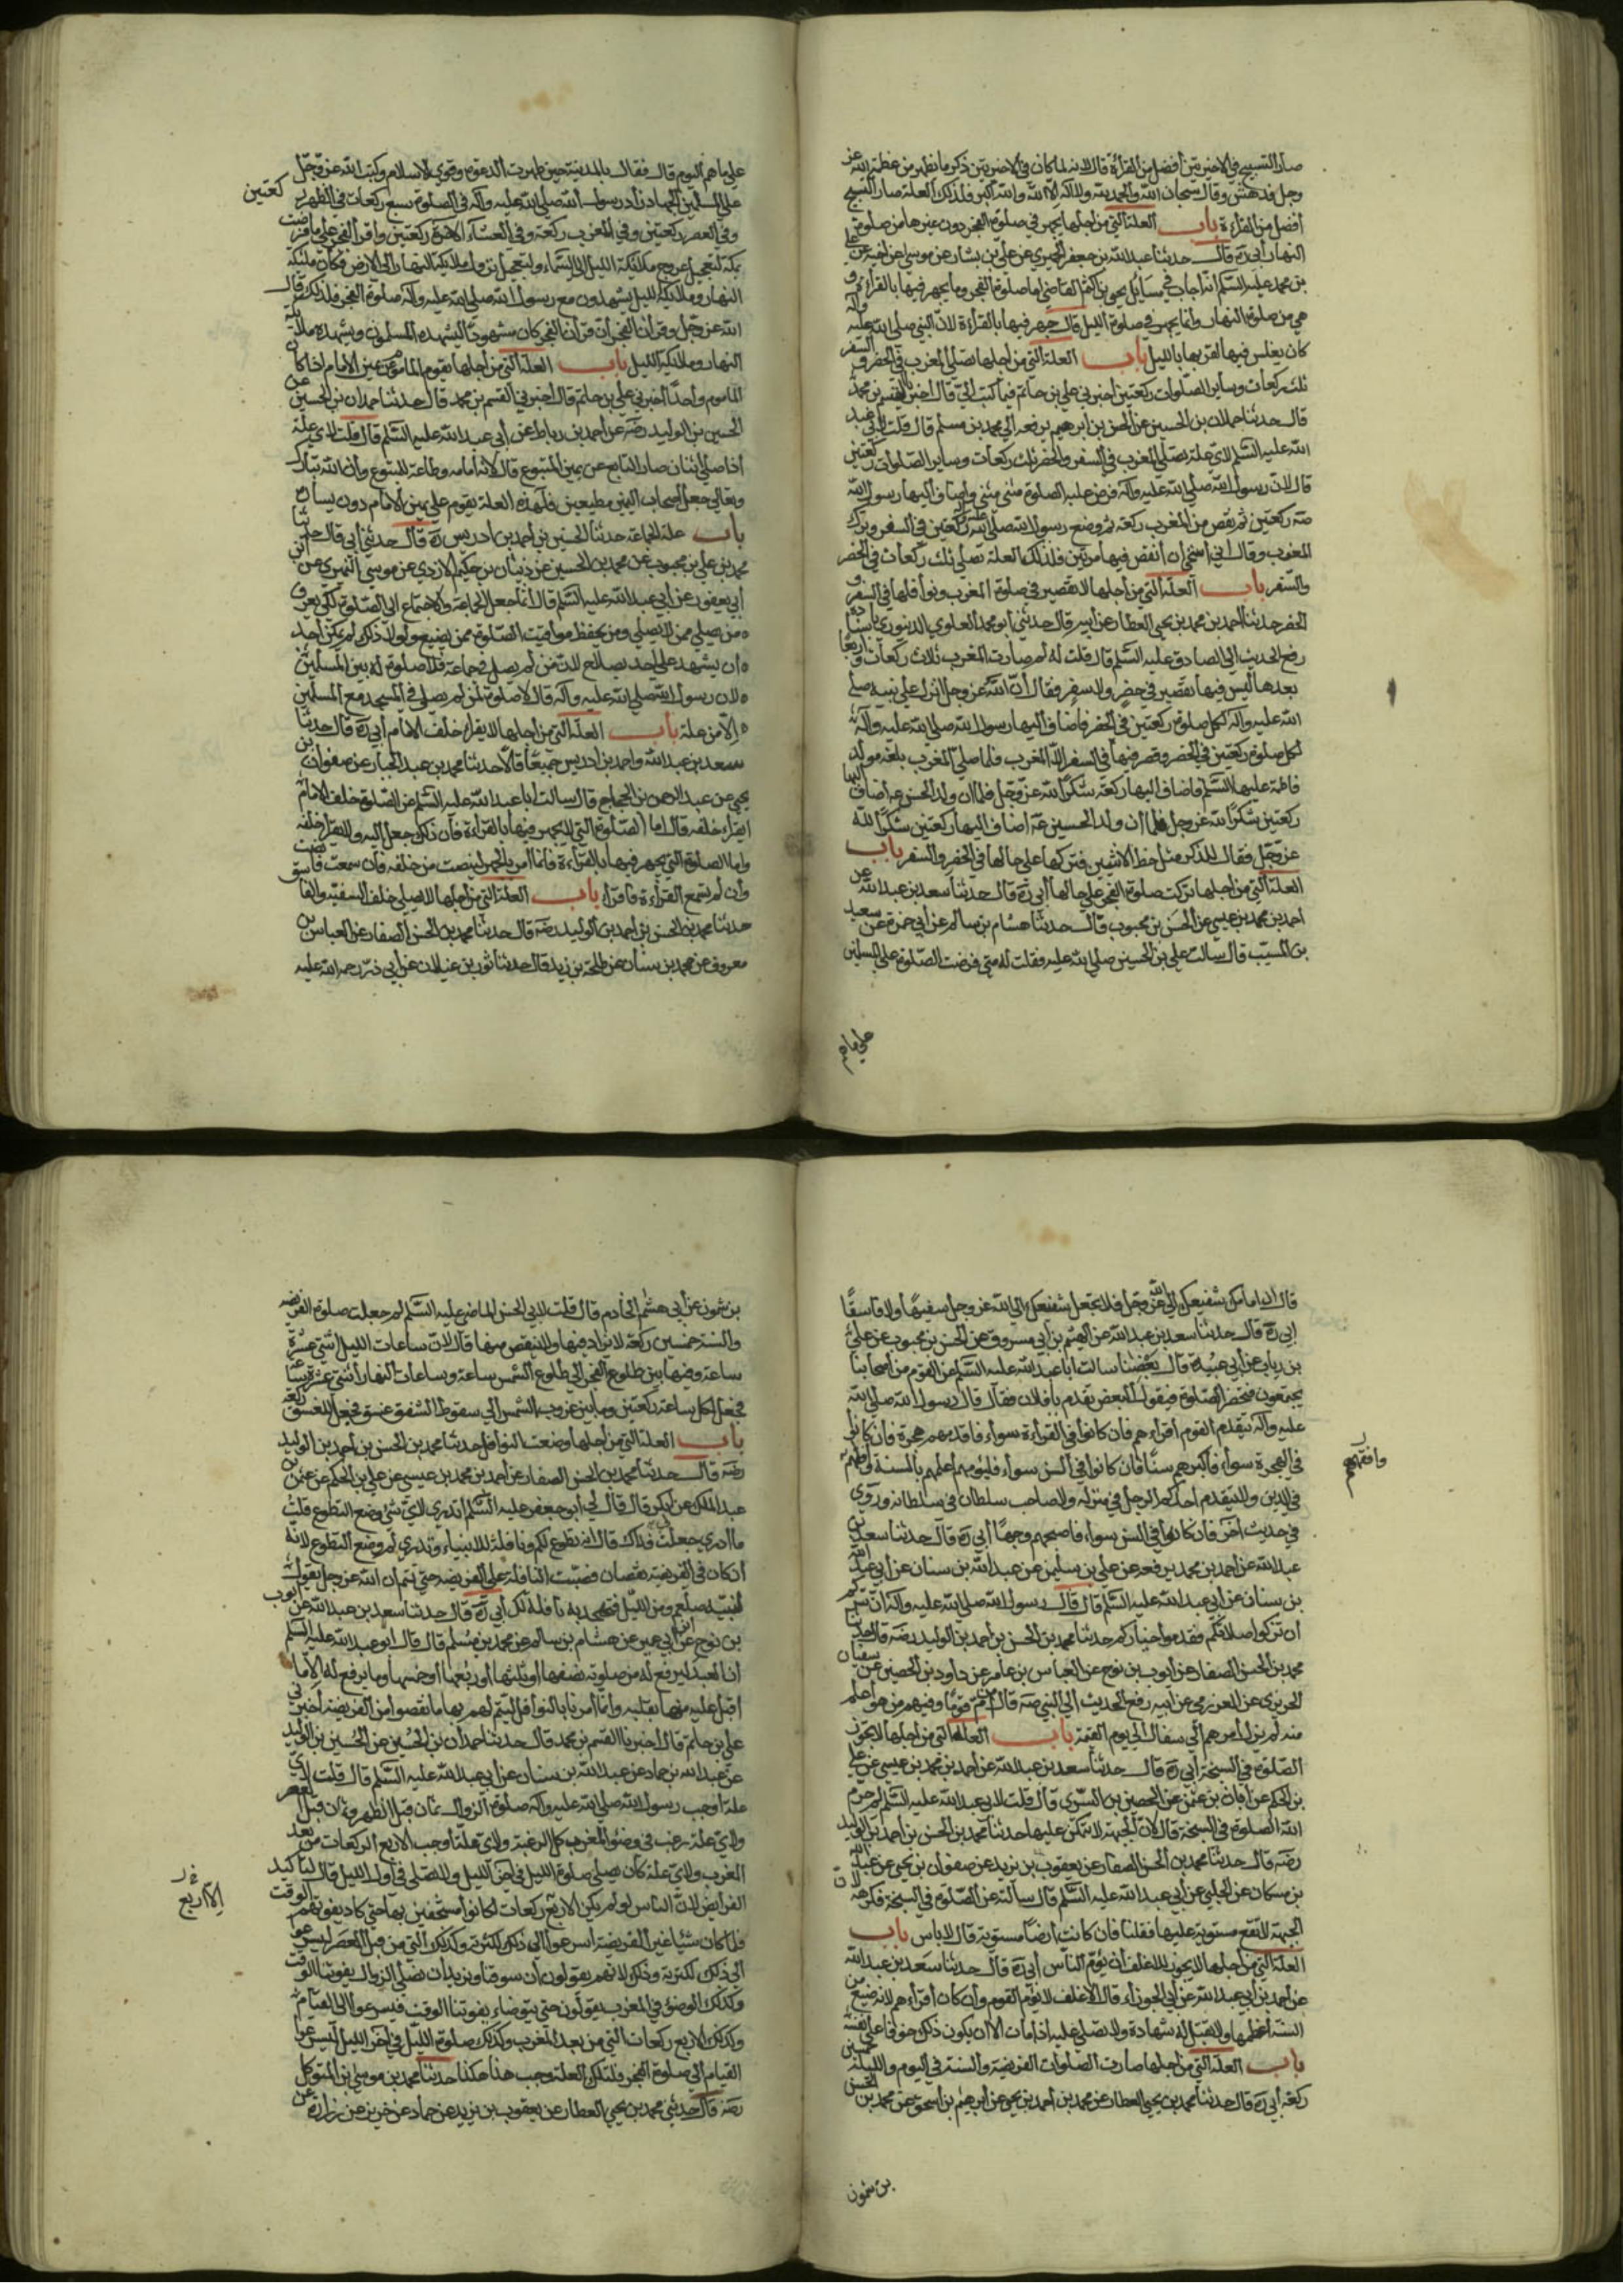 صار التسبيح في الاخيرتين أفضل من القراءة قال لانه لما كان في الاخيرتين ذكر ما يظهر من عظمة الله عز
وجل فدهش وقال سبحان الله والحمد لله ولا اله الا الله والله اكبر فلذلك العلة صار التسبيح
أفضل من القراءة باب العلة التي من اجلها يجهر في صلوة الفجر دون غيرها من صلوة
النهار أبي ره قال حدثنا عبد الله بن جعفر الحميري عن علي بن بشار عن موسى عن اخيه عن علي
بن محمد عليه السلم انه اجاب في مسائل يحيى بن اكثم القاضي اما صلوة الفجر وما يجهر فيها بالقراءة و
هي من صلوة النهار وانما يجهر في صلوة الليل قال جهر فيها بالقراءة لان النبي صلى الله عليه واله
كان يغلس فيها لقربها بالليل باب العلة التي من اجلها يصلي المغرب في الحضر و السفر
ثلث ركعات وساير الصلوات ركعتين اخبرني علي بن حاتم فيما كتب الي قال اخبرنا القسم بن محمد
قال حدثنا حمدان بن الحسين عن الحسن بن ابرهيم يرفعه الى محمد بن مسلم قال قلت لابي عبد
الله عليه السلم لاي علة يصلي المغرب في السفر والحضر ثلث ركعات وساير الصلوات ركعتين
قال لان رسول الله صلى الله عليه وآله فرض عليه الصلوة مثنى مثنى واضاف اليها رسول الله
صه ركعتين ثم نقص من المغرب ركعة ثم وضع رسول الله صلى الله عليه ركعتين في السفر وترك
المغرب وقال اني استحي ان انقص فيها مرتين فلذلك العلة تصلي ثلث ركعات في الحضر
والسفر باب العلة التي من اجلها لا تقصير في صلوة المغرب ونوافلها في السفر و
الحضر حدثنا احمد بن محمد بن يحيى العطار عن ابيه قال حدثني أبو محمد العلوي الدينوري باسناده
رفع الحديث الى الصادق عليه السلم قال قلت له لم صارت المغرب ثلاث ركعات و اربعا
بعدها ليس فيها تقصير في حضر ولا سفر فقال أن الله عز وجل انزل على نبيه صلى
الله عليه وآله لكل صلوة ركعتين في الحضر فاضاف اليها رسول الله صلى الله عليه وآله
لكل صلوة ركعتين في الحضر وقصر فيها في السفر الا المغرب فلما صلى المغرب بلغه مولد
فاطمة عليها السلم فاضاف اليها ركعة شكرا لله عز وجل فلما ان ولد الحسن عه أضاف اليها
ركعتين شكرا لله عز وجل فلما ان ولد الحسين عه اضاف اليها ركعتين شكرا لله
عز وجل فقال للذكر مثل حظ الانثيين فتركها على حالها في الحضر والسفر باب
العلة التي من اجلها تركت صلوة الفجر على حالها أبي ره قال حدثنا سعد بن عبد الله عن
احمد بن محمد بن عيسى عن الحسن بن محبوب قال حدثنا هشام بن سالم عن ابي حمزة عن سعيد
بن المسيب قال سالت علي بن الحسين صلى الله عليه فقلت له متى فرضت الصلوة على المسلمين
على ما هم
على ما هم اليوم قال فقال بالمدينة حين ظهرت الدعوة وقوي الاسلام وكتب الله عز وجل
على المسلمين الجهاد زاد رسول الله صلى الله عليه وآله في الصلوة سبع ركعات في الظهر ركعتين
وفي العصر ركعتين وفي المغرب ركعة وفي العشاء الاخرة ركعتين واقر الفجر على ما فرضت
بمكة لتعجيل عروج ملائكة الليل الى السماء ولتعجيل نزول ملائكة النهار الى الارض فكان ملئكة
النهار وملائكة الليل يشهدون مع رسول الله صلى الله عليه وآله صلوة الفجر فلذلك قال
الله عز وجل وقرآن الفجر أن قرآن الفجر كان مشهودا ليشهده المسلمون ويشهده ملائكة
النهار وملائكة الليل باب العلة التي من اجلها يقوم الماموم عن يمين الامام اذا كان
الماموم واحدا أخبرني علي بن حاتم قال اخبرني القسم بن محمد قال حدثنا حمدان بن الحسين عن
الحسين بن الوليد رضه عن احمد بن رباط عن أبي عبد الله عليه السلم قال قلت لاي علة
اذا صلى اثنان صار التابع عن يمين المتبوع قال لانه امامه وطاعة للمتبوع وأن الله تبارك
وتعالى جعل اصحاب اليمين مطيعين فلهذه العلة يقوم على يمين الامام دون يساره
باب علة الجماعة حدثنا الحسين بن احمد بن ادريس ره قال حدثني أبي قال حدثنا
محمد بن علي بن محبوب عن محمد بن الحسين عن ذبيان بن حكيم الازدي عن موسى النميري عن ابن
أبي يعفور عن ابي عبد الله عليه السلم قال انما جعل الجماعة والاجتماع الى الصلوة لكي يعرف
من يصلي ممن لا يصلي ومن يحفظ مواقيت الصلوة ممن يضيع ولولا ذلك لم يمكن احد
ان يشهد على احد بصلاح لان من لم يصل في جماعة فلا صلوة له بين المسلمين
لان رسول الله صلى الله عليه وآله قال لا صلوة لمن لم يصل في المسجد مع المسلمين
الا من علة باب العلة التي من اجلها لا يقرأ خلف الامام أبي ره قال حدثنا
سعد بن عبد الله واحمد بن ادريس جميعا قالا حدثنا محمد بن عبد الجبار عن صفوان بن
يحيى عن عبد الرحمن بن الحجاج قال سالت ابا عبد الله عليه السلم عن الصلوة خلف الامام
ايقراء خلفه قال اما الصلوة التي لا يجهر فيها بالقراءة فان ذلك جعل اليه ولا تقرأ خلفه
واما الصلوة التي يجهر فيها بالقراءة فانما امر بالجهر لينصت من خلفه فان سمعت فانصت
وأن لم تسمع القراءة فاقرأ باب العلة التي من اجلها لا يصلى خلف السفيه والفاسق
حدثنا محمد بن الحسن بن احمد بن الوليد رضه قال حدثنا محمد بن الحسن الصفار عن العباس بن
معروف عن محمد بن سنان عن طلحة بن زيد قال حدثنا ثور بن غيلان عن أبي ذر رحمه الله عليه
قال ان امامك شفيعك الى الله عز وجل فلا تجعل شفيعك الى الله عز وجل سفيها ولا فاسقا
ابي ره قال حدثنا سعد بن عبد الله عن الهيثم بن أبي مسروق عن الحسن بن محبوب عن علي
بن رياب عن ابي عبيدة قال بعضنا سالت ابا عبد الله عليه السلم عن القوم من اصحابنا
يجتمعون فتحضر الصلوة فيقول البعض تقدم يا فلان فقال قال رسول الله صلى الله
عليه وآله يتقدم القوم اقرأهم فان كانوا في القراءة سواء فاقدمهم هجرة فان كانوا
في الهجرة سواء فاكبرهم سنا فان كانوا في السن سواء فليؤمهم اعلمهم بالسنة وافقههم
في الدين ولا يتقدم احدكم الرجل في منزله ولا صاحب سلطان في سلطانه وروي
في حديث آخر فان كانوا في السن سواء فاصبحهم وجها أبي ره قال حدثنا سعد بن
عبد الله عن احمد بن محمد يرفعه عن علي بن سليمن عن عبد الله بن سنان عن ابي عبد الله
بن سنان عن ابي عبد الله عليه السلم قال قال رسول الله صلى الله عليه وآله ان سركم
ان تزكوا صلاتكم فقدموا خياركم حدثنا محمد بن الحسن بن احمد بن الوليد رضه قال حدثنا
محمد بن الحسن الصفار عن ايوب بن نوح عن العباس بن عامر عن داود بن الحصين عن سفيان
الحريري عن العزرمي عن ابيه رفع الحديث الى النبي صه قال من أم قوما وفيهم من هو اعلم
منه لم يزل امرهم الى سفال الى يوم القيمة باب العلة التي من اجلها لا يجوز
الصلوة في السبخة أبي ره قال حدثنا سعد بن عبد الله عن احمد بن محمد بن عيسى عن علي
بن الحكم عن ابان بن عثمن عن الحصين بن السري قال قلت لابي عبد الله عليه السلم لم حرم
الله الصلوة في السبخة قال لان الجبهة لا تتمكن عليها حدثنا محمد بن الحسن بن احمد بن الوليد
رضه قال حدثنا محمد بن الحسن الصفار عن يعقوب بن يزيد عن صفوان بن يحيى عن عبد الله
بن مسكان عن الحلبي عن أبي عبد الله عليه السلم قال سالته عن الصلوة في السبخة فكرهه لان
الجبهة لا تقع مستوية عليها فقلنا فان كانت ارضا مستوية قال لا باس باب
العلة التي من اجلها لا يجوز للاغلف ان يؤم الناس أبي ره قال حدثنا سعد بن عبد الله
عن احمد بن أبي عبد الله عن أبي الجوزاء قال الاغلف لا يؤم القوم وأن كان أقرأهم لانه ضيع من
السنة أعظمها ولا تقبل له شهادة ولا يصلى عليه اذا مات الا ان يكون ذلك خوفا على نفسه
باب العلة التي من اجلها صارت الصلوات الفريضة والسنة في اليوم والليلة خمسين
ركعة أبي ره قال حدثنا محمد بن يحيى العطار عن محمد بن احمد بن يحيى عن ابرهيم بن اسحق عن محمد بن الحسن
وافقههم
بن شمون
بن شمون عن أبي هاشم الخادم قال قلت لابي الحسن الماضي عليه السلم لم جعلت صلوة الفريضة
والسنة خمسين ركعة لا يزاد فيها ولا ينقص منها قال لان ساعات الليل اثنتي عشرة
ساعة وفيما بين طلوع الفجر الى طلوع الشمس ساعة وساعات النهار اثنتي عشرة ساعة
فجعل لكل ساعة ركعتين وما بين غروب الشمس الى سقوط الشفق غسق فجعل للغسق ركعة
باب العلة التي من اجلها وضعت النوافل حدثنا محمد بن الحسن بن احمد بن الوليد
رضه قال حدثنا محمد بن الحسن الصفار عن احمد بن محمد بن عيسى عن علي بن الحكم عن عثمن بن
عبد الملك عن ابي بكر قال قال لي ابو جعفر عليه السلم أتدري لاي شئ وضع التطوع قلت
ما ادري جعلت فداك قال انه تطوع لكم ونافلة للانبياء وتدري لم وضع التطوع لانه
ان كان في الفريضة نقصان فصبت النافلة على الفريضة حتى تتم ان الله عز وجل يقول
لنبيه صلعم ومن الليل فتهجد به نافلة لك أبي ره قال حدثنا سعد بن عبد الله عن ايوب
بن نوح عن ابن أبي عمير عن هشام بن سالم عن محمد بن مسلم قال قال ابو عبد الله عليه السلم
ان العبد ليرفع له من صلوته نصفها أو ثلثها أو ربعها أو خمسها وما يرفع له الا ما
اقبل عليه منها بقلبه وانما امرنا بالنوافل ليتم لهم بها ما نقصوا من الفريضة اخبرني
علي بن حاتم قال اخبرنا القسم بن محمد قال حدثنا حمدان بن الحسين عن الحسين بن الوليد
عن عبد الله بن حماد عن عبد الله بن سنان عن أبي عبد الله عليه السلم قال قلت لاي
علة اوجب رسول الله صلى الله عليه وآله صلوة الزوال ثمان قبل الظهر وثمان قبل العصر
ولاي علة رغب في وضوء المغرب كل الرغبة ولاي علة اوجب الاربع الركعات من بعد
المغرب ولاي علة كان يصلي صلوة الليل في آخر الليل ولا يصلى في أول الليل قال لتاكيد
الفرايض لان الناس لو لم يكن الا اربع ركعات لكانوا مستخفين بها حتى كاد يفوتهم الوقت
فلما كان شيئا غير الفريضة اسرعوا الى ذلك لكثرته وكذلك التي من قبل العصر ليسرعوا
الى ذلك لكثرته وذلك لانهم يقولون أن سوفنا ونريد أن نصلي الزوال يفوتنا الوقت
وكذلك الوضوء في المغرب يقولون حتى نتوضاء يفوتنا الوقت فيسرعوا الى القيام
وكذلك الاربع ركعات التي من بعد المغرب وكذلك صلوة الليل في آخر الليل ليسرعوا
القيام الى صلوة الفجر فلتلك العلة وجب هذا هكذا حدثنا محمد بن موسى بن المتوكل
رضه قال حدثني محمد بن يحيى العطار عن يعقوب بن يزيد عن حماد عن حريز عن زرارة عن
الا اربع